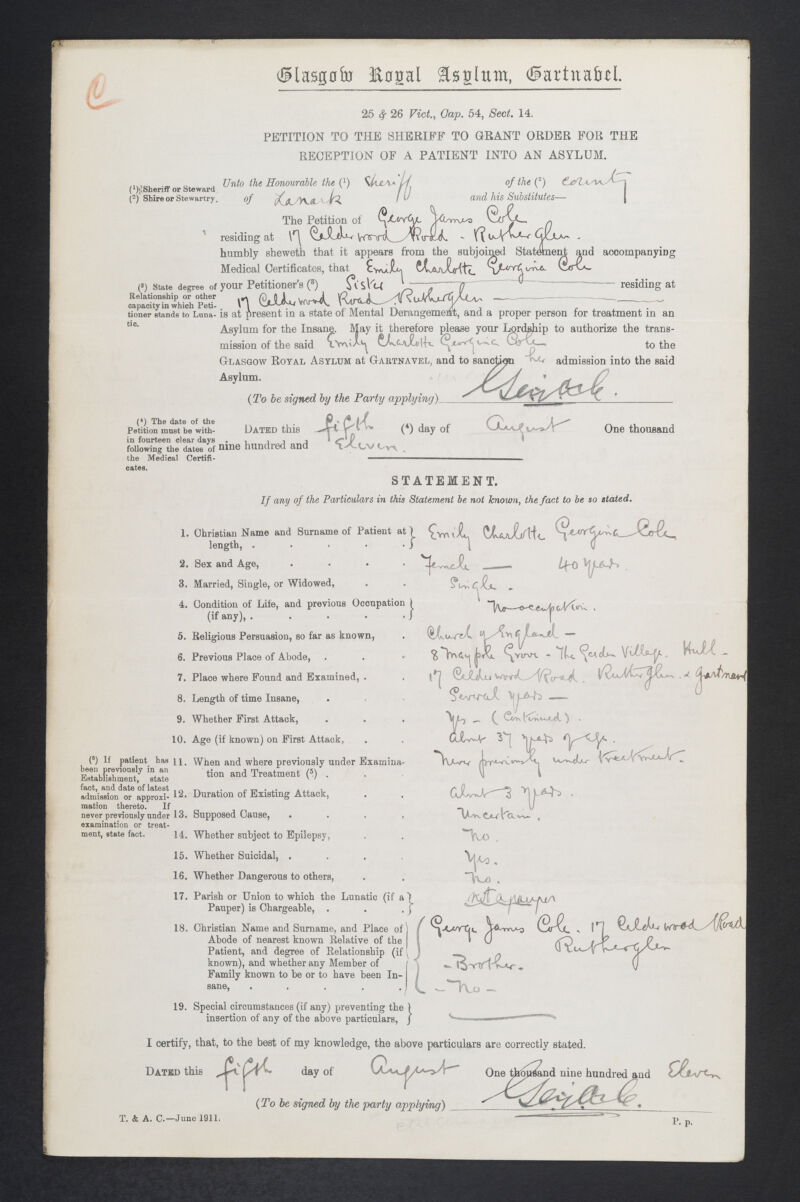 Glasgow Royal Asylum, Gartnabel.
25 & 26 Vict., Cap. 54, Sect. 14.
PETITION TO THE SHERIFF TO GRANT ORDER FOR THE
RECEPTION OF A PATIENT INTO AN ASYLUM.
(1) Sheriff or Steward
(2) Shire or Stewartry.
Unto the Honourable the (1) Sheriff of the (2) county
of Lanark and his Substitutes—
The Petition of George James Cole
residing at 17 Calderwood Road - Rutherglen.
humbly sheweth that it appears from the subjoined Statement and accompanying
Medical Certificates, that Emily Charlotte Georgina Cole
(3) State degree of
Relationship or other
capacity in which Peti-
tioner stands to Luna-
tic.
your Petitioner's (3) Sister residing at
17 Calderwood Road Rutherglen
is at present in a state of Mental Derangement, and a proper person for treatment in an
Asylum for the Insane. May it therefore please your Lordship to authorize the trans-
mission of the said Emily Charlotte Georgina Cole to the
GLASGOW ROYAL ASYLUM at GARTNAVEL, and to sanction her admission into the said
Asylum.
(To be signed by the Party applying)
(4) The date of the
Petition must be with-
in fourteen clear days
following the dates of
the Medical Certifi-
cates.
DATED this fifth (4) day of August One thousand
nine hundred and Eleven.
STATEMENT.
If any of the Particulars in this Statement be not known, the fact to be so stated.
1. Christian Name and Surname of Patient at
length, . Emily Charlotte Georgina Cole
2. Sex and Age, Female — 40 years.
3. Married, Single, or Widowed, Single -
4. Condition of Life, and previous Occupation
(if any), . No-occupation.
5. Religious Persuasion, so far as known, Church of England —
6. Previous Place of Abode, 8 Maypole Grove - The Garden Village. Hull -
7. Place where Found and Examined, 17 Calderwood Road. Rutherglen. & Gartnavel
8. Length of time Insane, Several years —
9. Whether First Attack, Yes - (Continued).
10. Age (if known) on First Attack, About 37 years of age.
(5) If patient has
been previously in an
Establishment, state
fact, and date of latest
admission or approxi-
mation thereto. If
never previously under
examination or treat-
ment, state fact.
11. When and where previously under Examina-
tion and Treatment (5) . Never previously under treatment.
12. Duration of Existing Attack, About 3 years.
13. Supposed Cause, Uncertain.
14. Whether subject to Epilepsy, No.
15. Whether Suicidal, . Yes.
16. Whether Dangerous to others, No.
17. Parish or Union to which the Lunatic (if a
Pauper) is Chargeable, . Not a pauper
18. Christian Name and Surname, and Place of
Abode of nearest known Relative of the
Patient, and degree of Relationship (if
known), and whether any Member of
Family known to be or to have been In-
sane, .
George James Cole. 17 Calderwood Road
Rutherglen
- Brother.
- No -
19. Special circumstances (if any) preventing the
insertion of any of the above particulars,
I certify, that, to the best of my knowledge, the above particulars are correctly stated.
DATED this fifth day of August One thousand nine hundred and Eleven
(To be signed by the party applying)
T. & A. C.—June 1911.
P. p.